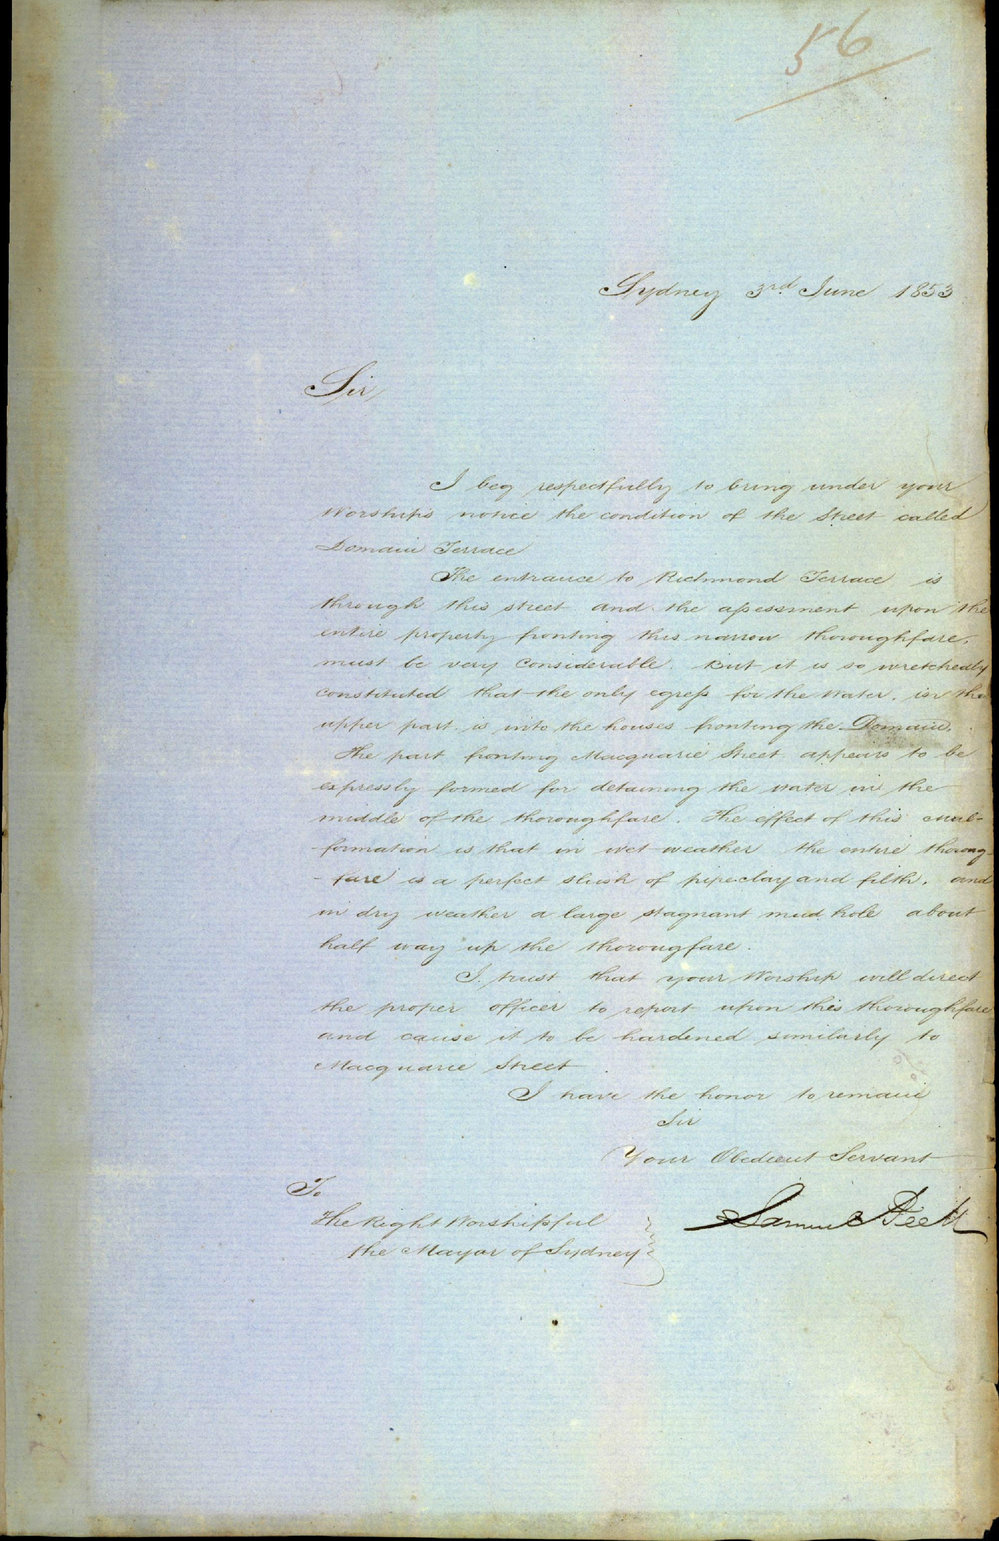 56
Sydney 3rd June 1853
Sir
I beg respectfully to bring under your
Worship's notice the condition of the Street called
Domain Terrace
The entrance to Richmond Terrace is
through this street and the assessment upon the
entire property fronting this narrow thoroughfare,
must be very considerable. But it is so wretchedly
constituted that the only egress for the water, in the
upper part is into the houses fronting the Domain.
The part fronting Macquarie Street appears to be
expressly formed for detaining the water in the
middle of the thoroughfare. The effect of this mal-
-formation is that in wet weather the entire thoroug-
-fare is a perfect slush of pipeclay and filth, and
in dry weather a large stagnant mud hole about
half way up the thorougfare.
I trust that your Worship will direct
the proper officer to report upon this thoroughfare
and cause it to be hardened similarly to
Macquarie Street
I have the honor to remain
Sir
Your Obedient Servant
Samuel Peek
To
The Right Worshipful
the Mayor of Sydney